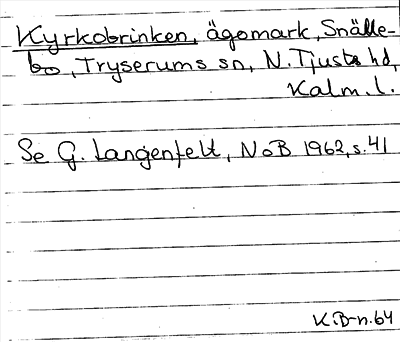 Kyrkobrinken, ägomark, Snälle-
bo, Tryserums sn, N. Tjusts hd,
Kalm. l.
Se G. Langenfelt, NoB 1962, s. 41
K.B-n. 64